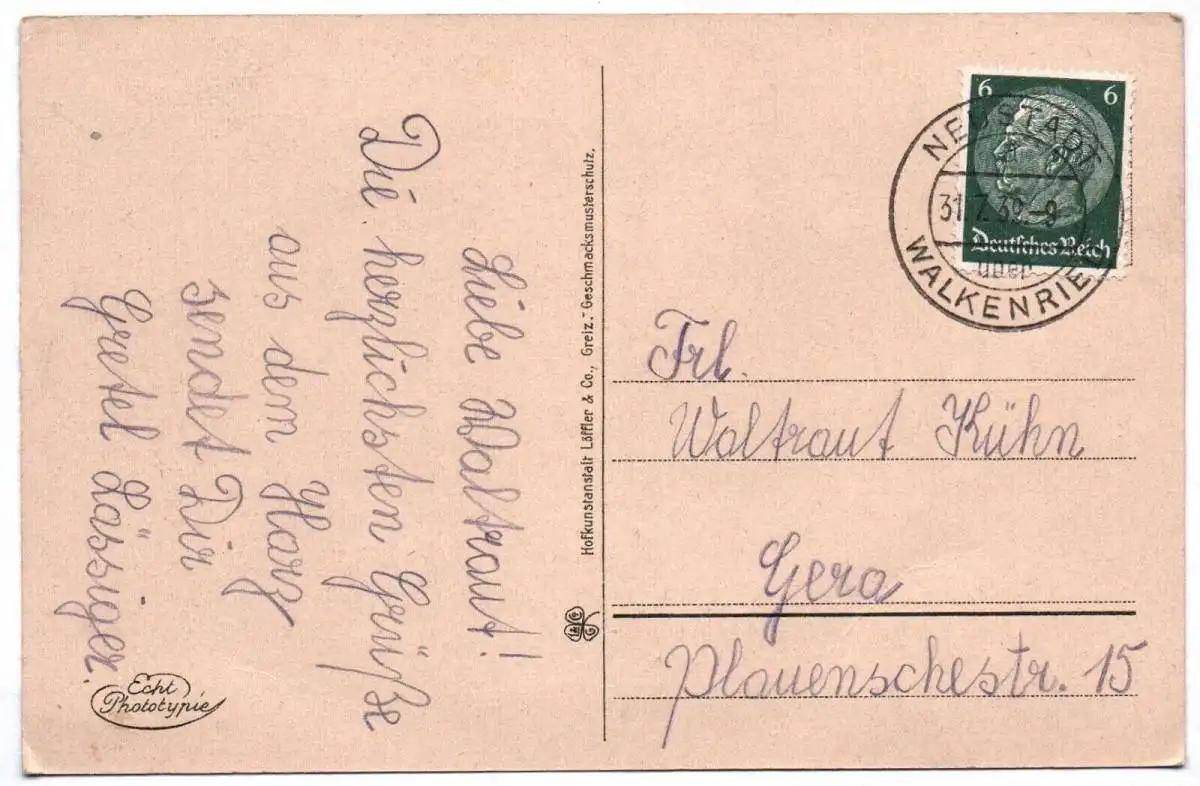 Liebe Waltraut!
Die herzlichsten Grüße
aus dem Harz
sendet Dir
Gretel Lässiger.
Echt
Phototypie
Hofkunstanstalt Löffler & Co., Greiz.- Geschmacksmusterschutz.
6 6
Deutsches Reich
NEUSTADT
31.7.39.-9
über
WALKENRIED
Frl.
Waltraut Kühn
Gera
Plauenschestr. 15